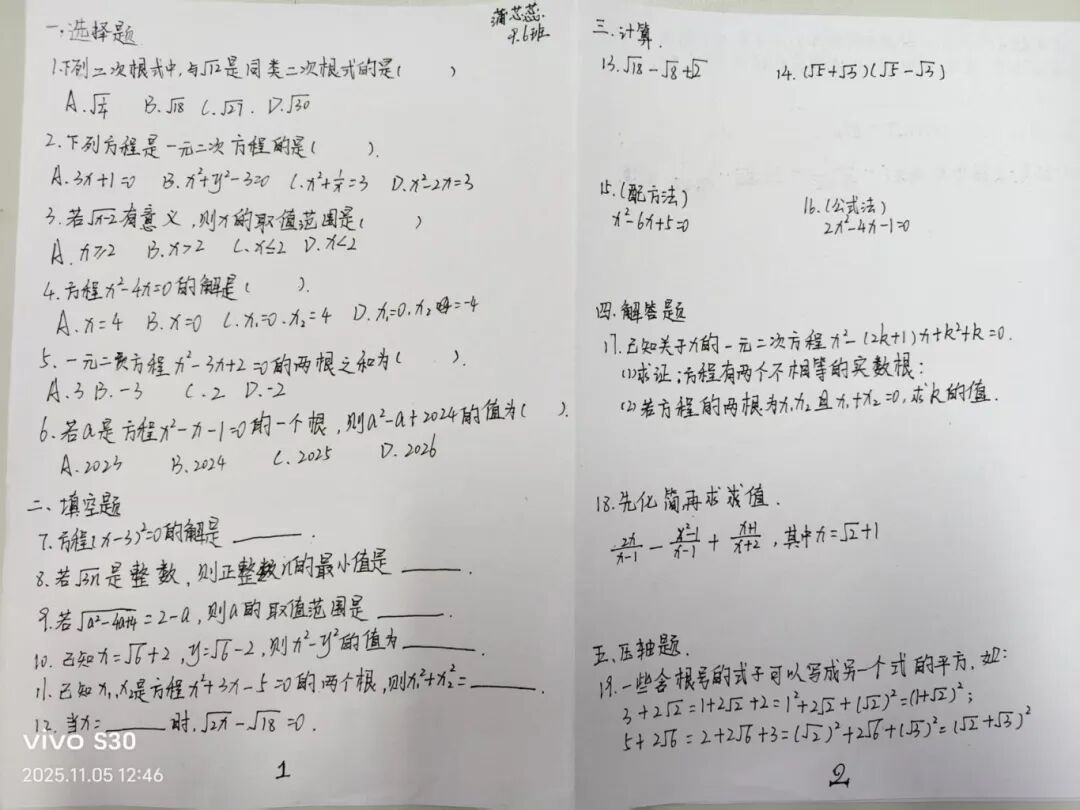 一、选择题
1.下列二次根式中,与√12是同类二次根式的是(  )
B.√18 C.√27. D.√30
2.下列方程是一元二次方程的是(  ).
A.3x+1=0 B.x²+y²-3=0 C.x²+1/x=3 D.x²-2x=3
3.若√x-2有意义,则x的取值范围是(  )
A.x≥2 B.x>2 C.x≤2 D.x<2
4.方程x²-4x=0的解是(  ).
A.x=4 B.x=0 C.x₁=0.x₂=4 D.x₁=0.x₂=-4
5.一元二次方程x²-3x+2=0的两根之和为(  ).
A.3 B.-3 C.2 D.-2
6.若a是方程x²-x-1=0的一个根,则a²-a+2024的值为(  ).
A.2023 B.2024 C.2025 D.2026
二、填空题
7.方程(x-3)²=0的解是______.
8.若√3n是整数,则正整数n的最小值是______.
9.若√a²-4a+4=2-a,则a的取值范围是______.
10.已知x=√6+2,y=√6-2,则x²-y²的值为______.
11.已知x₁,x₂是方程x²+3x-5=0的两个根,则x₁²+x₂²=______.
12.当x=______时.√2x-√18=0.
1
蒲芯蕊.
9.6班
三.计算.
13.√18-√8+√2 14.(√5+√3)(√5-√3)
15.(配方法) 16.(公式法)
x²-6x+5=0 2x²-4x-1=0
四.解答题
17.已知关于x的一元二次方程x²-(2k+1)x+k²+k=0.
(1)求证:方程有两个不相等的实数根:
(2)若方程的两根为x₁x₂且x₁+x₂=0,求k的值.
18.先化简再求求值.
2x/x-1 - x²-1/x-1 + x+1/x+2,其中x=√2+1
五.压轴题.
19.一些含根号的式子可以写成另一个式的平方.如:
3+2√2=1+2√2+2=1²+2√2+(√2)²=(1+√2)²;
5+2√6=2+2√6+3=(√2)²+2√6+(√3)²=(√2+√3)²
2
vivo S30
2025.11.05 12:46